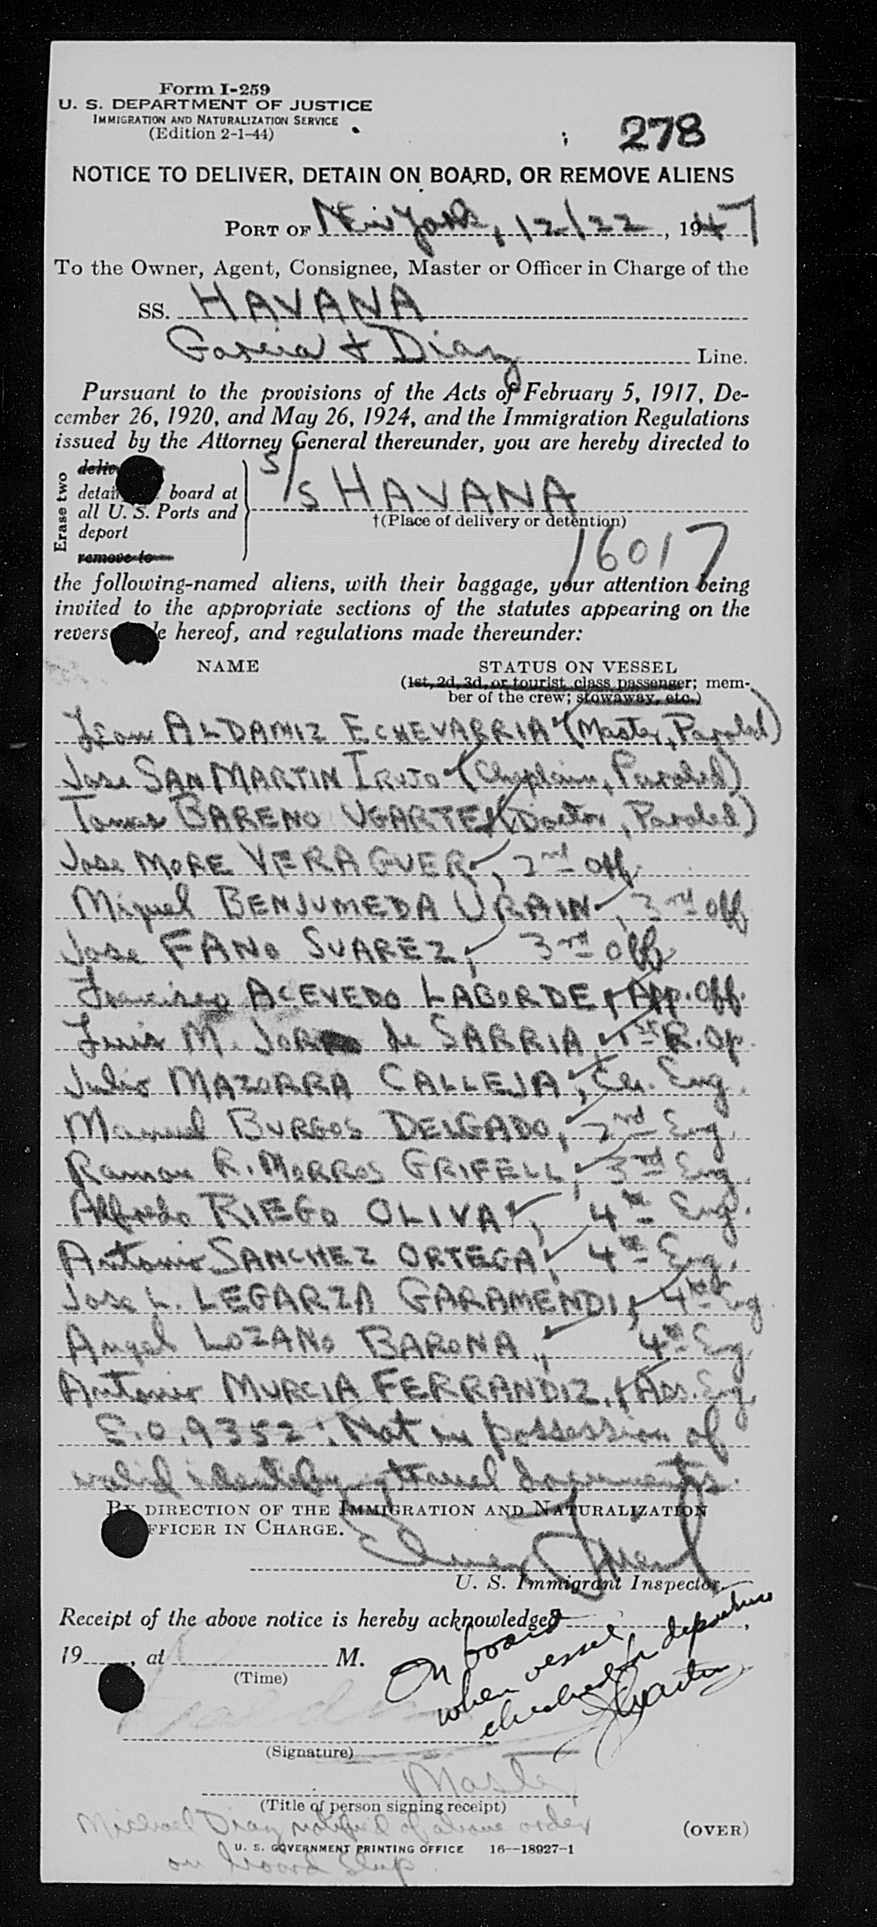 Form I-259
U. S. DEPARTMENT OF JUSTICE
IMMIGRATION AND NATURALIZATION SERVICE
(Edition 2-1-44)
278
NOTICE TO DELIVER, DETAIN ON BOARD, OR REMOVE ALIENS
PORT OF New York, 12/22, 1947
To the Owner, Agent, Consignee, Master or Officer in Charge of the
SS. HAVANA
Garcia & Diaz Line.
Pursuant to the provisions of the Acts of February 5, 1917, De-
cember 26, 1920, and May 26, 1924, and the Immigration Regulations
issued by the Attorney General thereunder, you are hereby directed to
Erase two
board at
all U. S. Ports and
deport
remove to
S/S HAVANA
†(Place of delivery or detention)
16017
the following-named aliens, with their baggage, your attention being
invited to the appropriate sections of the statutes appearing on the
hereof, and regulations made thereunder:
NAME STATUS ON VESSEL
(1st, 2d, 3d, or tourist class passenger; mem-
ber of the crew; stowaway, etc.)
ALDAMIZ ECHEVARRIA (Master, Paroled)
Jose SAN MARTIN (Chaplain, Paroled)
Tomas BARENO UGARTE (Doctor, Paroled)
Jose MORE VERAGUER, 2nd Off.
Miguel BENJUMEDA URAIN, 3rd Off
Jose FANO SUAREZ, 3rd Off
Francisco ACEVEDO LABORDE, App. Off.
Luis M. de SARRIA, 1st R. Op.
Julio MAZORRA CALLEJA, Ch. Eng.
Manuel BURGOS DELGADO, 2nd Eng.
Ramon R. MORROS GRIFELL, 3rd Eng.
Alfredo RIEGO OLIVA, 4th Eng.
Antonio SANCHEZ ORTEGA, 4th Eng.
Jose L. LEGARZA GARAMENDI, 4th Eng
Angel LOZANO BARONA, 4th Eng.
Antonio MURCIA FERRANDIZ, Ass. Eng.
E.O. 9352: Not in possession of
valid identity travel documents.
BY DIRECTION OF THE IMMIGRATION AND NATURALIZATION
OFFICER IN CHARGE.
U. S. Immigrant Inspector.
Receipt of the above notice is hereby acknowledged
19 , at M.
(Time)
On board
when vessel
checked for departure
(Signature)
Master
(Title of person signing receipt)
Michael Diaz notified of above order
on board ship
(OVER)
U. S. GOVERNMENT PRINTING OFFICE 16—18927-1